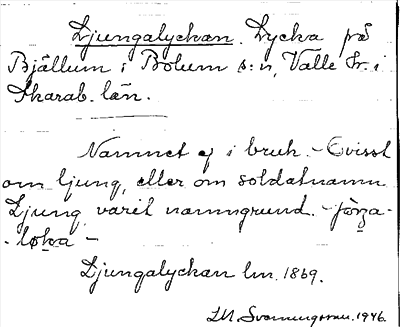 Ljungalyckan. Lycka på
Bjällum i Bolum s:n, Valle hr. i
Skarab. län.
Namnet ej i bruk. – Ovisst
om ljung, eller om soldatnamn
Ljung varit namngrund. – jöŋa-
-løka –
Ljungalyckan lm. 1869.
I.M. Svenningsson. 1946.